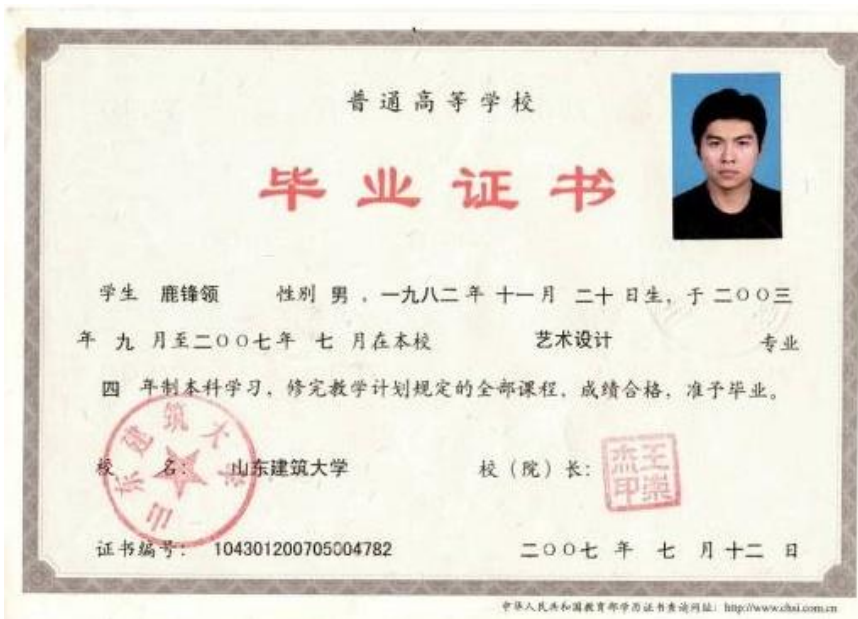 普通高等学校
毕业证书
学生 鹿锋领 性别 男 ，一九八二 年 十一 月 二十 日生，于 二〇〇三
年 九 月至二〇〇七年 七 月在本校 艺术设计 专业
四 年制本科学习，修完教学计划规定的全部课程，成绩合格，准予毕业。
校 名： 山东建筑大学
校（院）长：
王崇杰印
山东建筑大学
证书编号： 104301200705004782
二〇〇七 年 七 月 十二 日
中华人民共和国教育部学历证书查询网址：http://www.chsi.com.cn